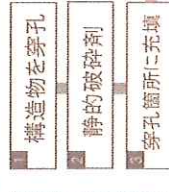 1 構造物を穿孔
2 静的破砕剤
3 穿孔箇所に充填